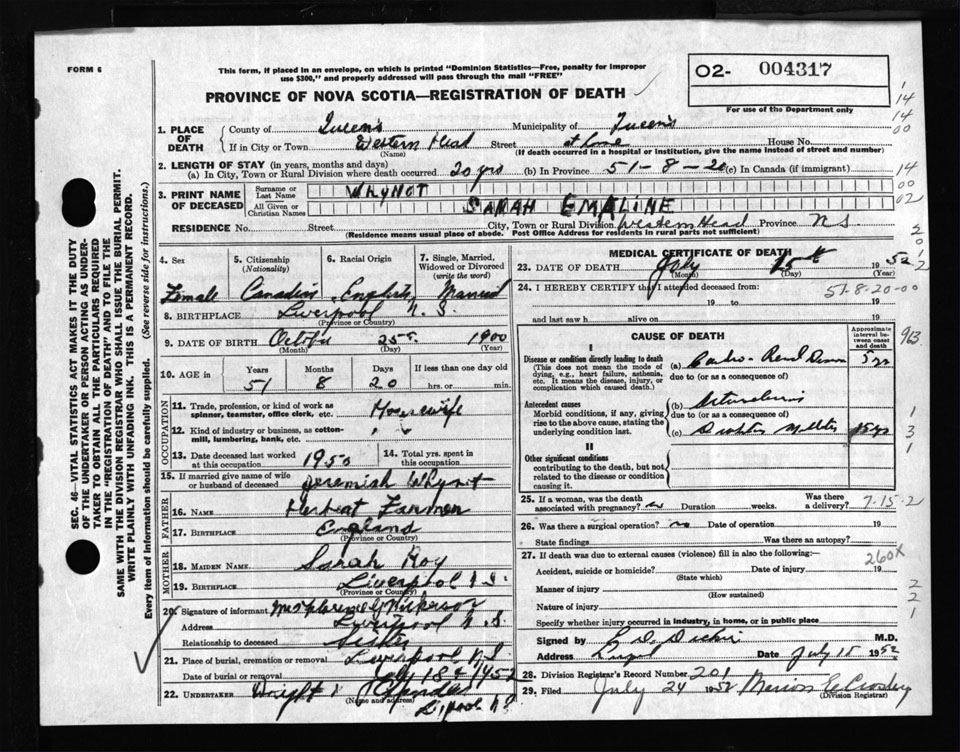 FORM 6
This form, if placed in an envelope, on which is printed "Dominion Statistics—Free, penalty for improper
use $300," and properly addressed will pass through the mail "FREE"
PROVINCE OF NOVA SCOTIA—REGISTRATION OF DEATH
02- 004317
For use of the Department only
SEC. 46—VITAL STATISTICS ACT MAKES IT THE DUTY
OF THE UNDERTAKER OR PERSON ACTING AS UNDER-
TAKER TO OBTAIN ALL THE PARTICULARS REQUIRED
IN THE "REGISTRATION OF DEATH" AND TO FILE THE
SAME WITH THE DIVISION REGISTRAR WHO SHALL ISSUE THE BURIAL PERMIT.
WRITE PLAINLY WITH UNFADING INK. THIS IS A PERMANENT RECORD.
Every item of information should be carefully supplied. (See reverse side for instructions.)
1. PLACE OF DEATH
County of Queen's Municipality of Queen's
If in City or Town Western Head Street at home House No.
(Name) (If death occurred in a hospital or institution, give the name instead of street and number)
2. LENGTH OF STAY (in years, months and days)
(a) In City, Town or Rural Division where death occurred 20 yrs (b) In Province 51-8-20 (c) In Canada (if immigrant)
3. PRINT NAME OF DECEASED
Surname or Last Name WHYNOT
All Given or Christian Names SARAH EMALINE
RESIDENCE No. Street City, Town or Rural Division Western Head Province N S
(Residence means usual place of abode. Post Office Address for residents in rural parts not sufficient)
4. Sex Female
5. Citizenship (Nationality) Canadian
6. Racial Origin English
7. Single, Married, Widowed or Divorced (write the word) Married
8. BIRTHPLACE Liverpool N. S.
(Province or Country)
9. DATE OF BIRTH October 25 1900
(Month) (Day) (Year)
10. AGE in Years 51 Months 8 Days 20 If less than one day
hrs. or min.
OCCUPATION
11. Trade, profession, or kind of work as
spinner, teamster, office clerk, etc. Housewife
12. Kind of industry or business, as cotton-
mill, lumbering, bank, etc. " "
13. Date deceased last worked
at this occupation 1950
14. Total yrs. spent in
this occupation
15. If married give name of wife
or husband of deceased Jeremiah Whynot
FATHER
16. NAME Herbert
17. BIRTHPLACE England
(Province or Country)
MOTHER
18. MAIDEN NAME Sarah Roy
19. BIRTHPLACE Liverpool N. S.
(Province or Country)
20. Signature of informant Mrs
Address Liverpool N. S.
Relationship to deceased Sister
21. Place of burial, cremation or removal Liverpool N.S.
Date of burial or removal July 18th 1952
22. UNDERTAKER Wright
(Name and address)
MEDICAL CERTIFICATE OF DEATH
23. DATE OF DEATH July 15th 1952
(Month) (Day) (Year)
24. I HEREBY CERTIFY that I attended deceased from:
19 to 19
and last saw h alive on 19
51-8-20-00
CAUSE OF DEATH
Approximate interval between onset and death
I
Disease or condition directly leading to death
(This does not mean the mode of
dying, e.g., heart failure, asthenia,
etc. It means the disease, injury, or
complication which caused death.)
(a) Cardio-Renal 5 yr
due to (or as a consequence of)
Antecedent causes
Morbid conditions, if any, giving
rise to the above cause, stating the
underlying condition last.
(b)
due to (or as a consequence of)
(c) 15 yr
II
Other significant conditions
contributing to the death, but not
related to the disease or condition
causing it.
25. If a woman, was the death
associated with pregnancy? no Duration weeks. Was there a delivery? 7-15-2
26. Was there a surgical operation? no Date of operation 19
State findings Was there an autopsy?
27. If death was due to external causes (violence) fill in also the following:—
260X
Accident, suicide or homicide? Date of injury 19
(State which)
Manner of injury
(How sustained)
Nature of injury
Specify whether injury occurred in industry, in home, or in public place
Signed by M.D.
Address Date July 15 1952
28. Division Registrar's Record Number 201
29. Filed July 24 1952 Marion E Crosby
(Division Registrar)